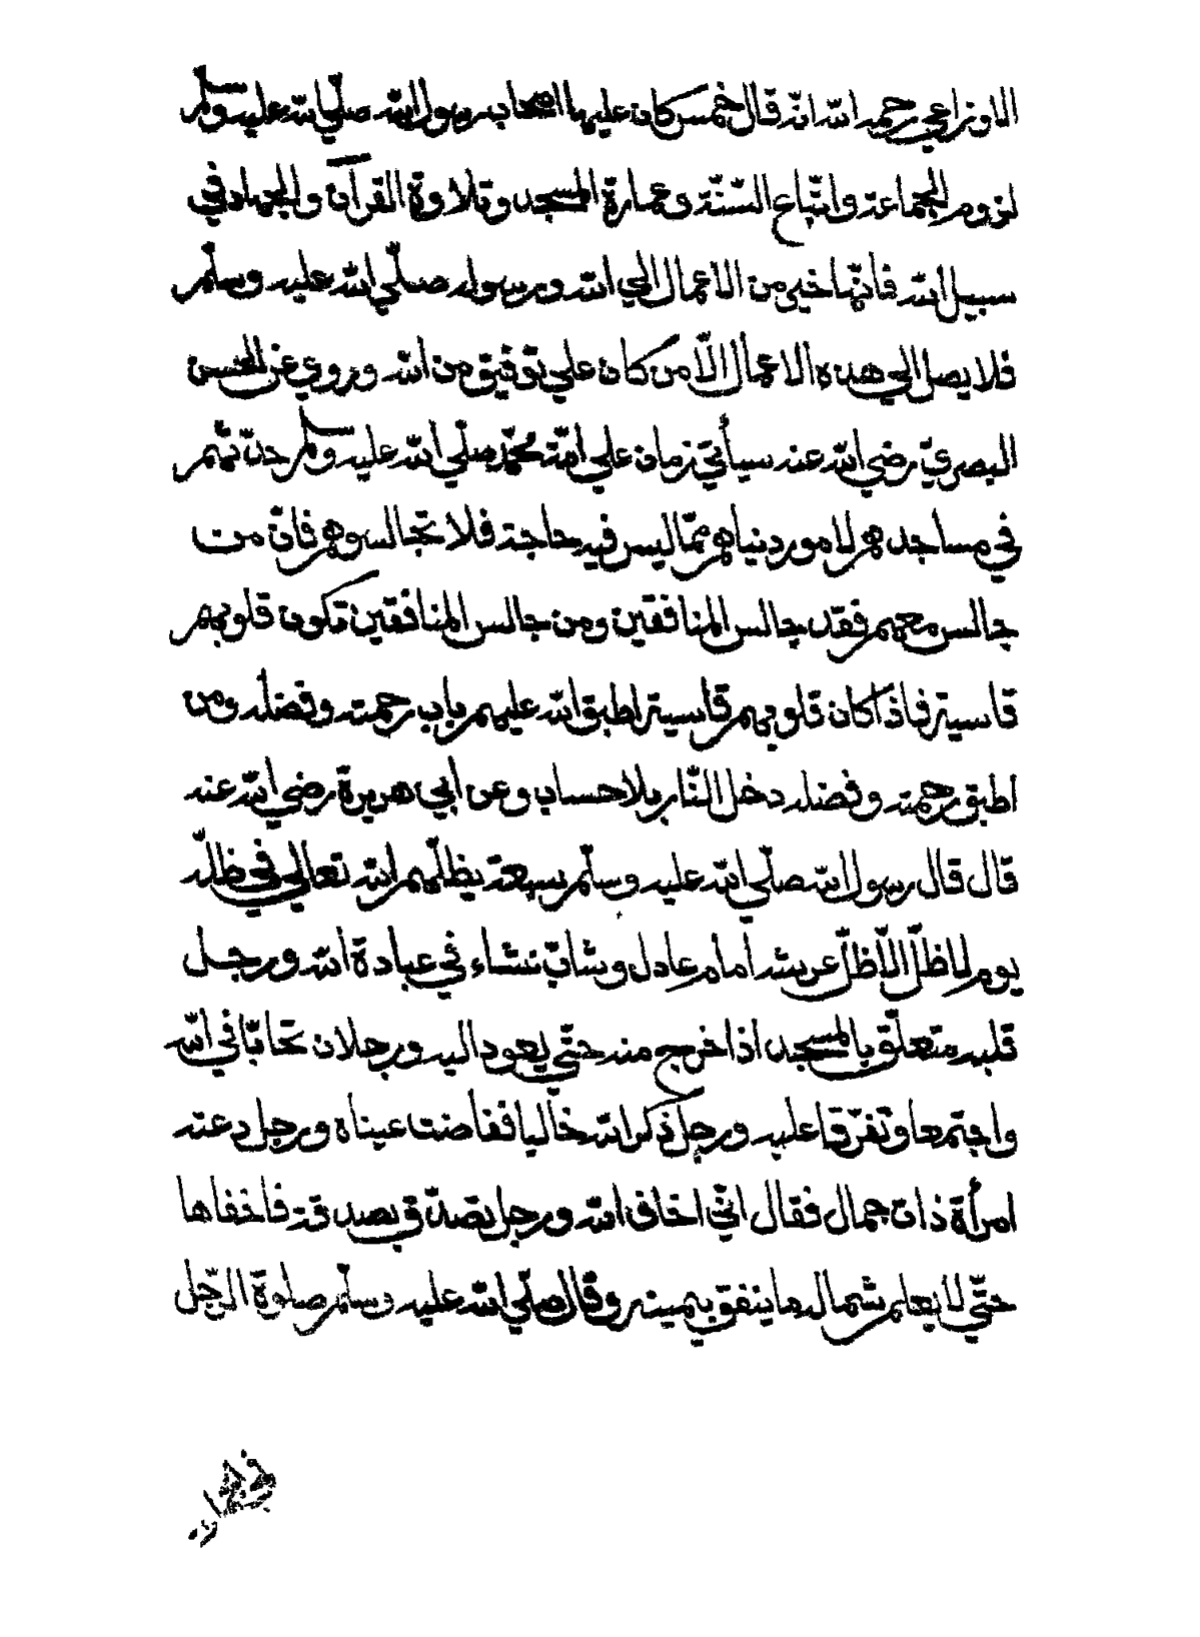 الاوزاعي رحمه الله انّه قال خمس كان عليها اصحاب رسول الله صلّي الله عليه وسلم
لزوم الجماعة واتّباع السّنّة وعمارة المسجد وتلاوة القرآن والجهاد في
سبيل الله فانّها خير من الاعمال الي الله ورسوله صلّي الله عليه وسلّم
فلا يصل الي هذه الاعمال الّا من كان علي توفيق من الله وروي عن الحسن
البصريّ رضي الله عنه سيأتي زمان علي امّة محمّد صلّي الله عليه وسلم حديثهم
في مساجدهم لامور دنياهم ممّا ليس فيه حاجة فلا تجالسوهم فانّ من
جالس معهم فقد جالس المنافقين ومن جالس المنافقين تكون قلوبهم
قاسية فاذا كان قلوبهم قاسية اطبق الله عليهم باب رحمته وفضله ومن
اطبق رحمته وفضله دخل النّار بلا حساب وعن ابي هريرة رضي الله عنه
قال قال رسول الله صلّي الله عليه وسلّم سبعة يظلّهم الله تعالي في ظلّه
يوم لا ظلّ الّا ظلّ عرشه امام عادل وشابّ نشاء في عبادة الله ورجل
قلبه متعلّق بالمسجد اذا خرج منه حتّي يعود اليه ورجلان تحابّا في الله
واجتمعا وتفرّقا عليه ورجل ذكر الله خاليا ففاضت عيناه ورجل دعته
امرأة ذات جمال فقال انّي اخاف الله ورجل تصدّق بصدقة فاخفاها
حتّي لا يعلم شماله ما ينفق بيمينه وقال صلّي الله عليه وسلّم صلوة الرّجل